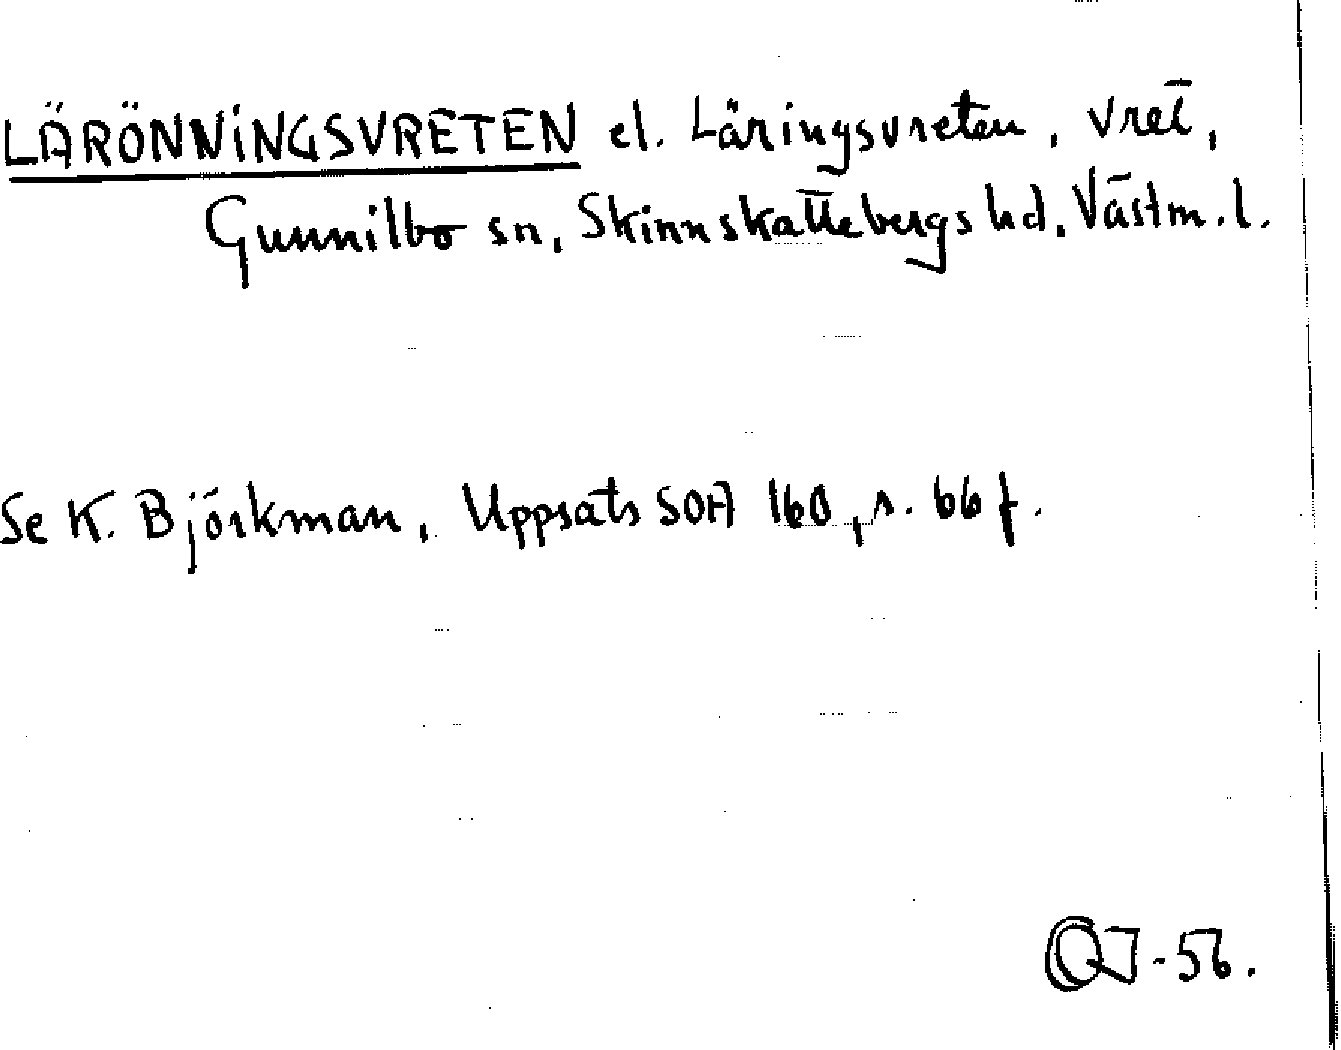 LÄRÖNNINGSVRETEN el. Läringsvreten, vret,
Gunnilbo sn, Skinnskattebergs hd, Västm. l.
Se K. Björkman, Uppsats SOA 160, s. 66 f.
QJ-56.